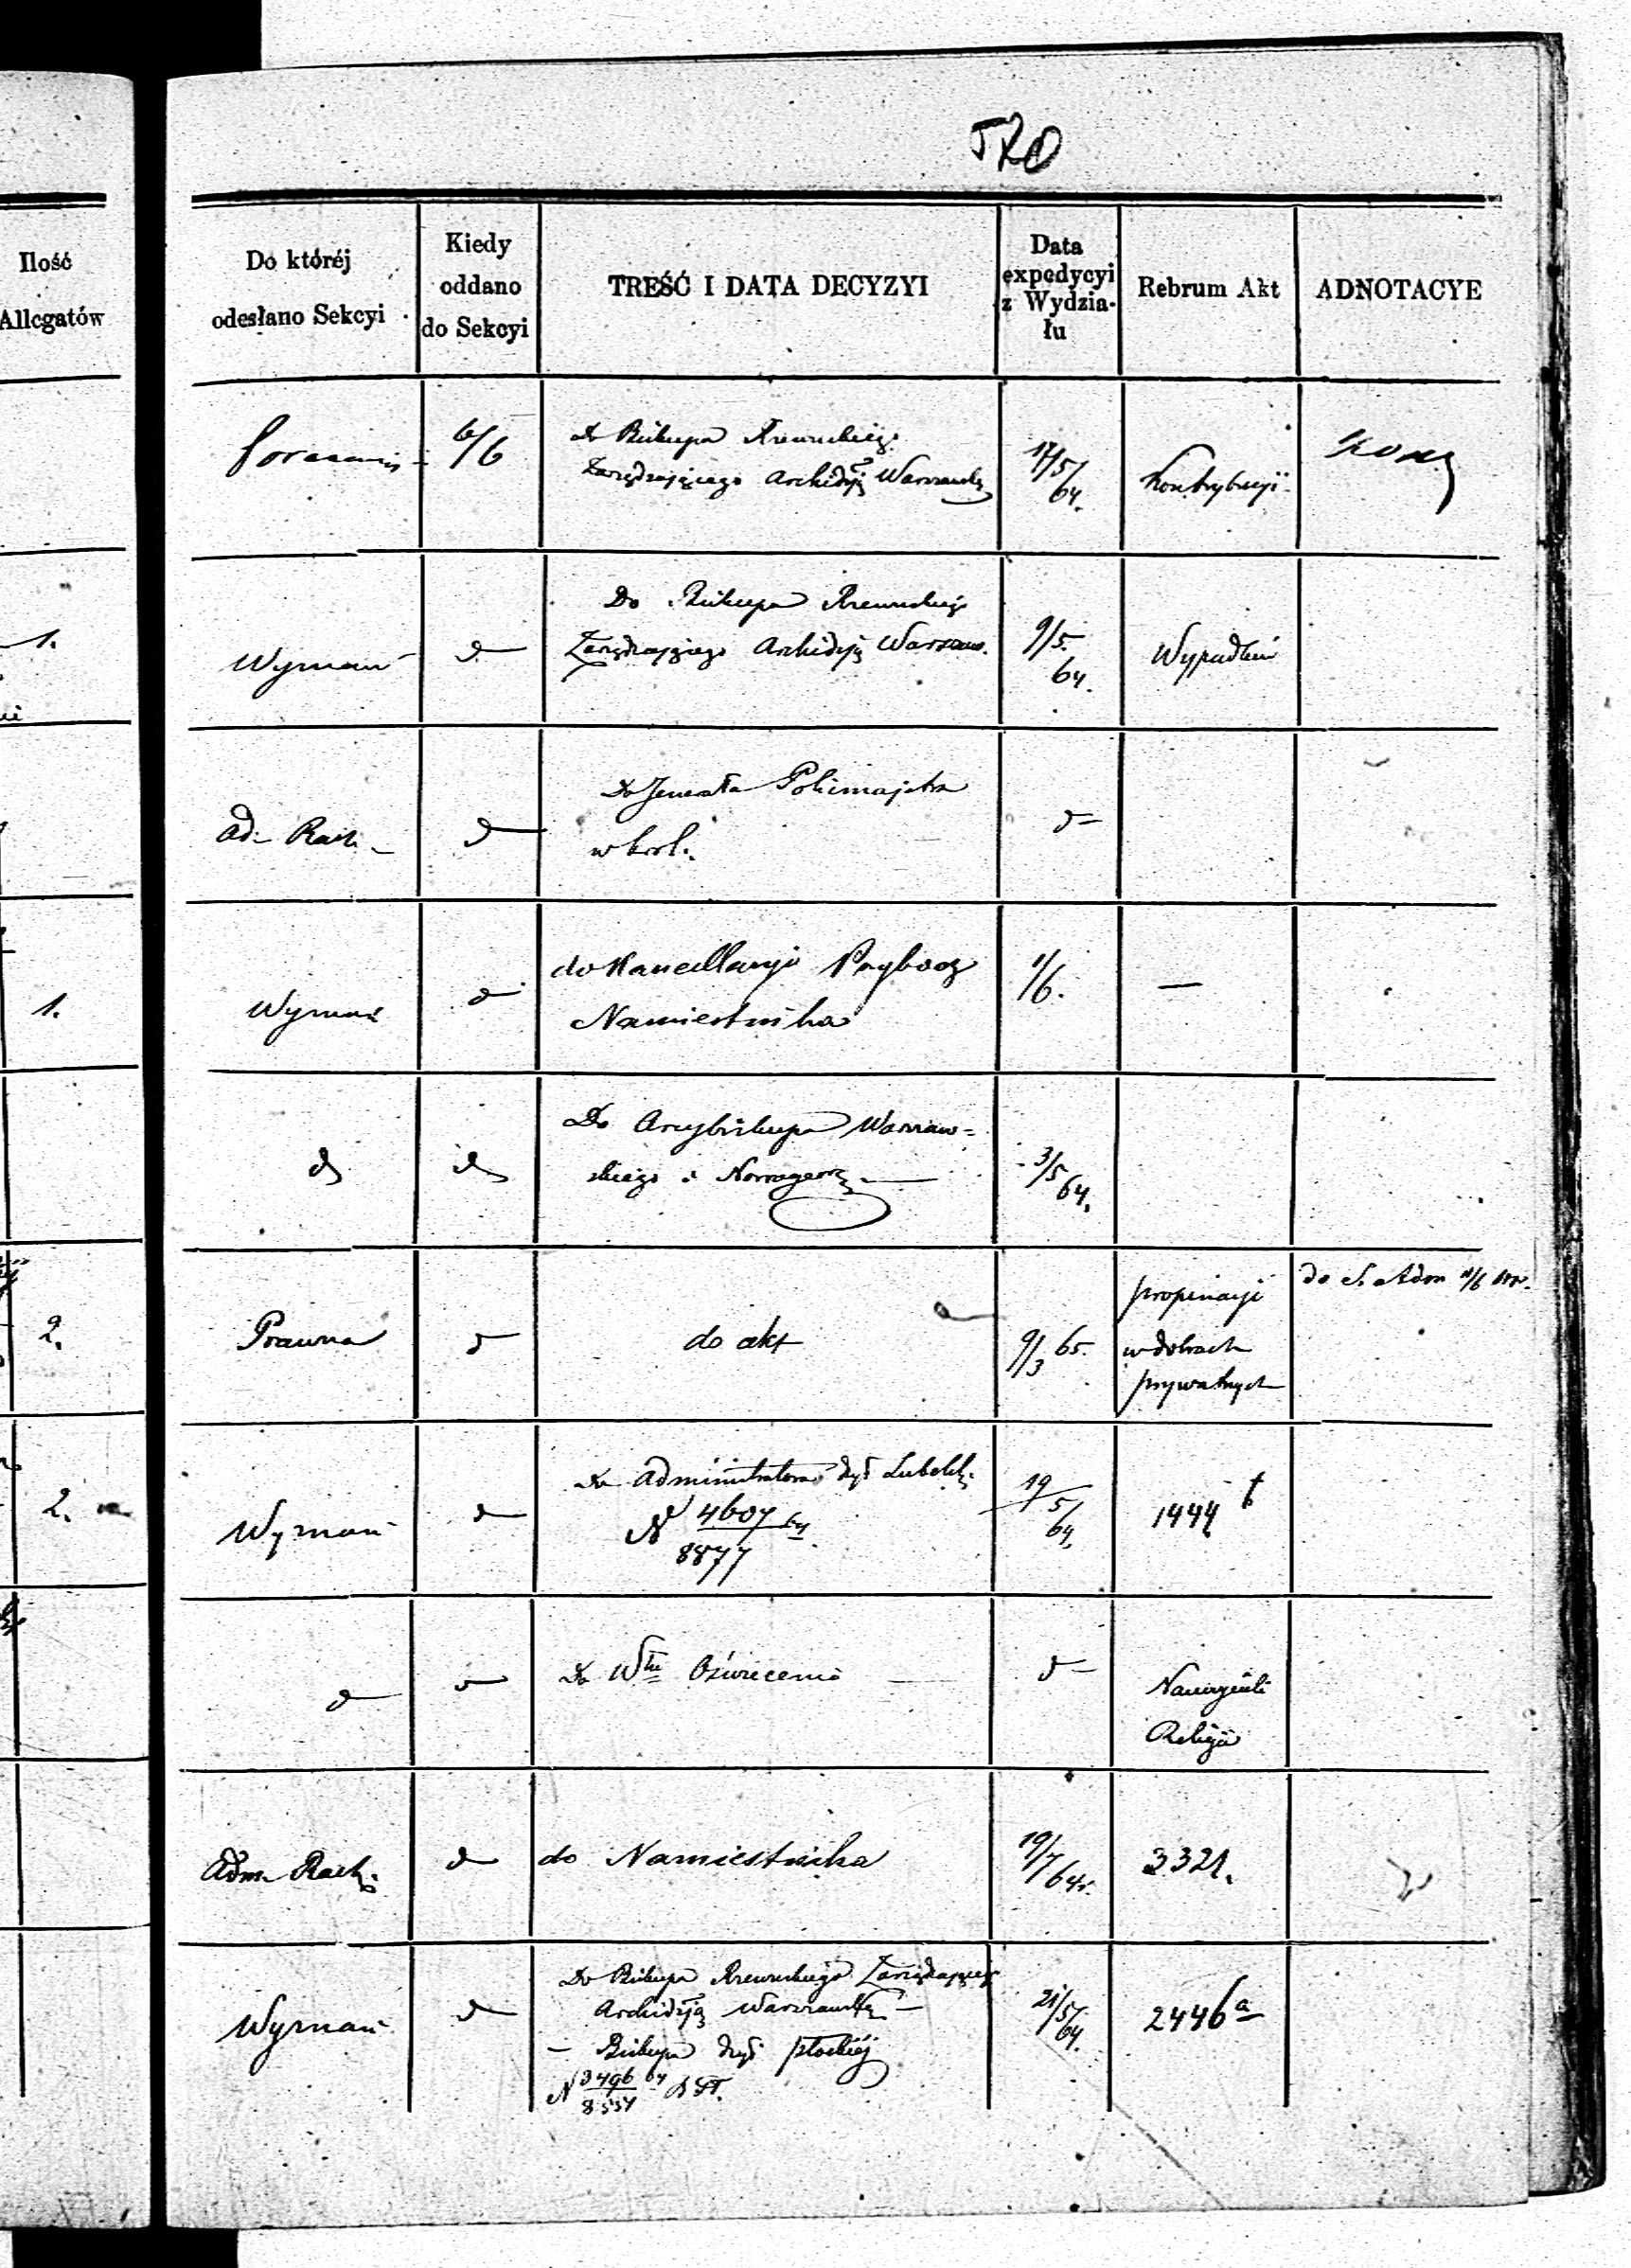 520
Ilość
Allegatów
Do któréj
odesłano Sekcyi
Kiedy
oddano
do Sekcyi
TREŚĆ I DATA DECYZYI
Data
expedycyi
z Wydzia-
łu
Rebrum Akt
ADNOTACYE
6/6
Do Biskupa Rzewuskiego
Zarządzającego Archidyją Warszawską
17/5
64.
Kontrybucyi
1.
Wyznań
d
Do Biskupa Rzewuskiego
Zarządzającego Archidyją Warszaw.
9/5.
64.
Wypadków
Ad. Rach.
d
Do Jenerała Policmajstra
w Król.
d
1.
Wyznań
d
do Kancellaryi Przybocz
Namiestnika
1/6.
—
d
d
Do Arcybiskupa Warszaw=
skiego i Nowogeorg.
3/5
64.
2.
Prawna
d
do akt
9/3 65.
propinacyi
w dobrach
prywatnych
do S. Adm 11/6
2.
Wyznań
d
Do Administratora dyi Lubelsk.
N 4607 64
8877
19/5
64.
1444
d
d
Do Włu Oświecenia
d
Nauczycieli
Religii
Adm. Rach.
d
do Namiestnika
19/7
64r.
3321.
Wyznań
d
Do Biskupa Rzewuskiego Zarządzającego
Archidyją Warszawską —
— Biskupa dyi płockiéj
N 3496 64
8557
21/5
64.
2446 a